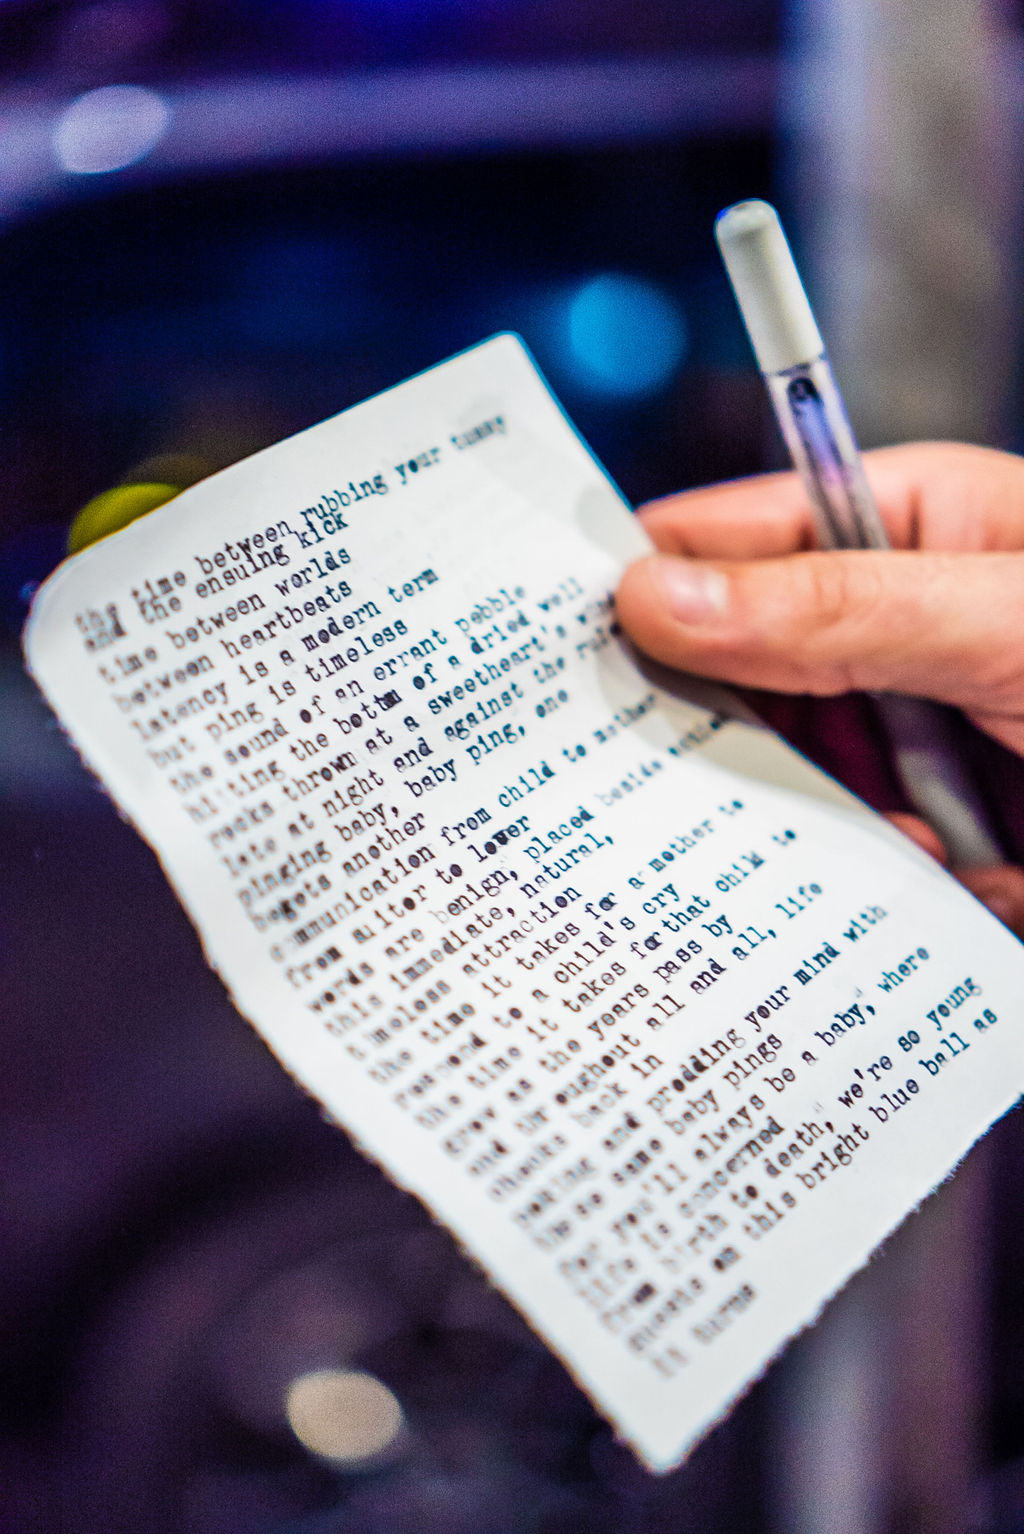 the time between rubbing your tummy
and the ensuing kick
time between worlds
between heartbeats
latency is a modern term
but ping is timeless
the sound of an errant pebble
hitting the bottm of a dried well
rocks thrown at a sweetheart's
late at night and against the rules
pinging baby, baby ping, one
begets another
communication from child to mother
from suitor to lover
words are benign, placed beside
this immediate, natural,
timeless attraction
the time it takes for a mother to
respond to a child's cry
the time it takes for that child to
grow as the years pass by
and throughout all and all, life
checks back in
poking and prodding your mind with
those same baby pings
for you'll always be a baby, where
life is concerned
from birth to death, we're so young
guests on this bright blue ball as
it turns